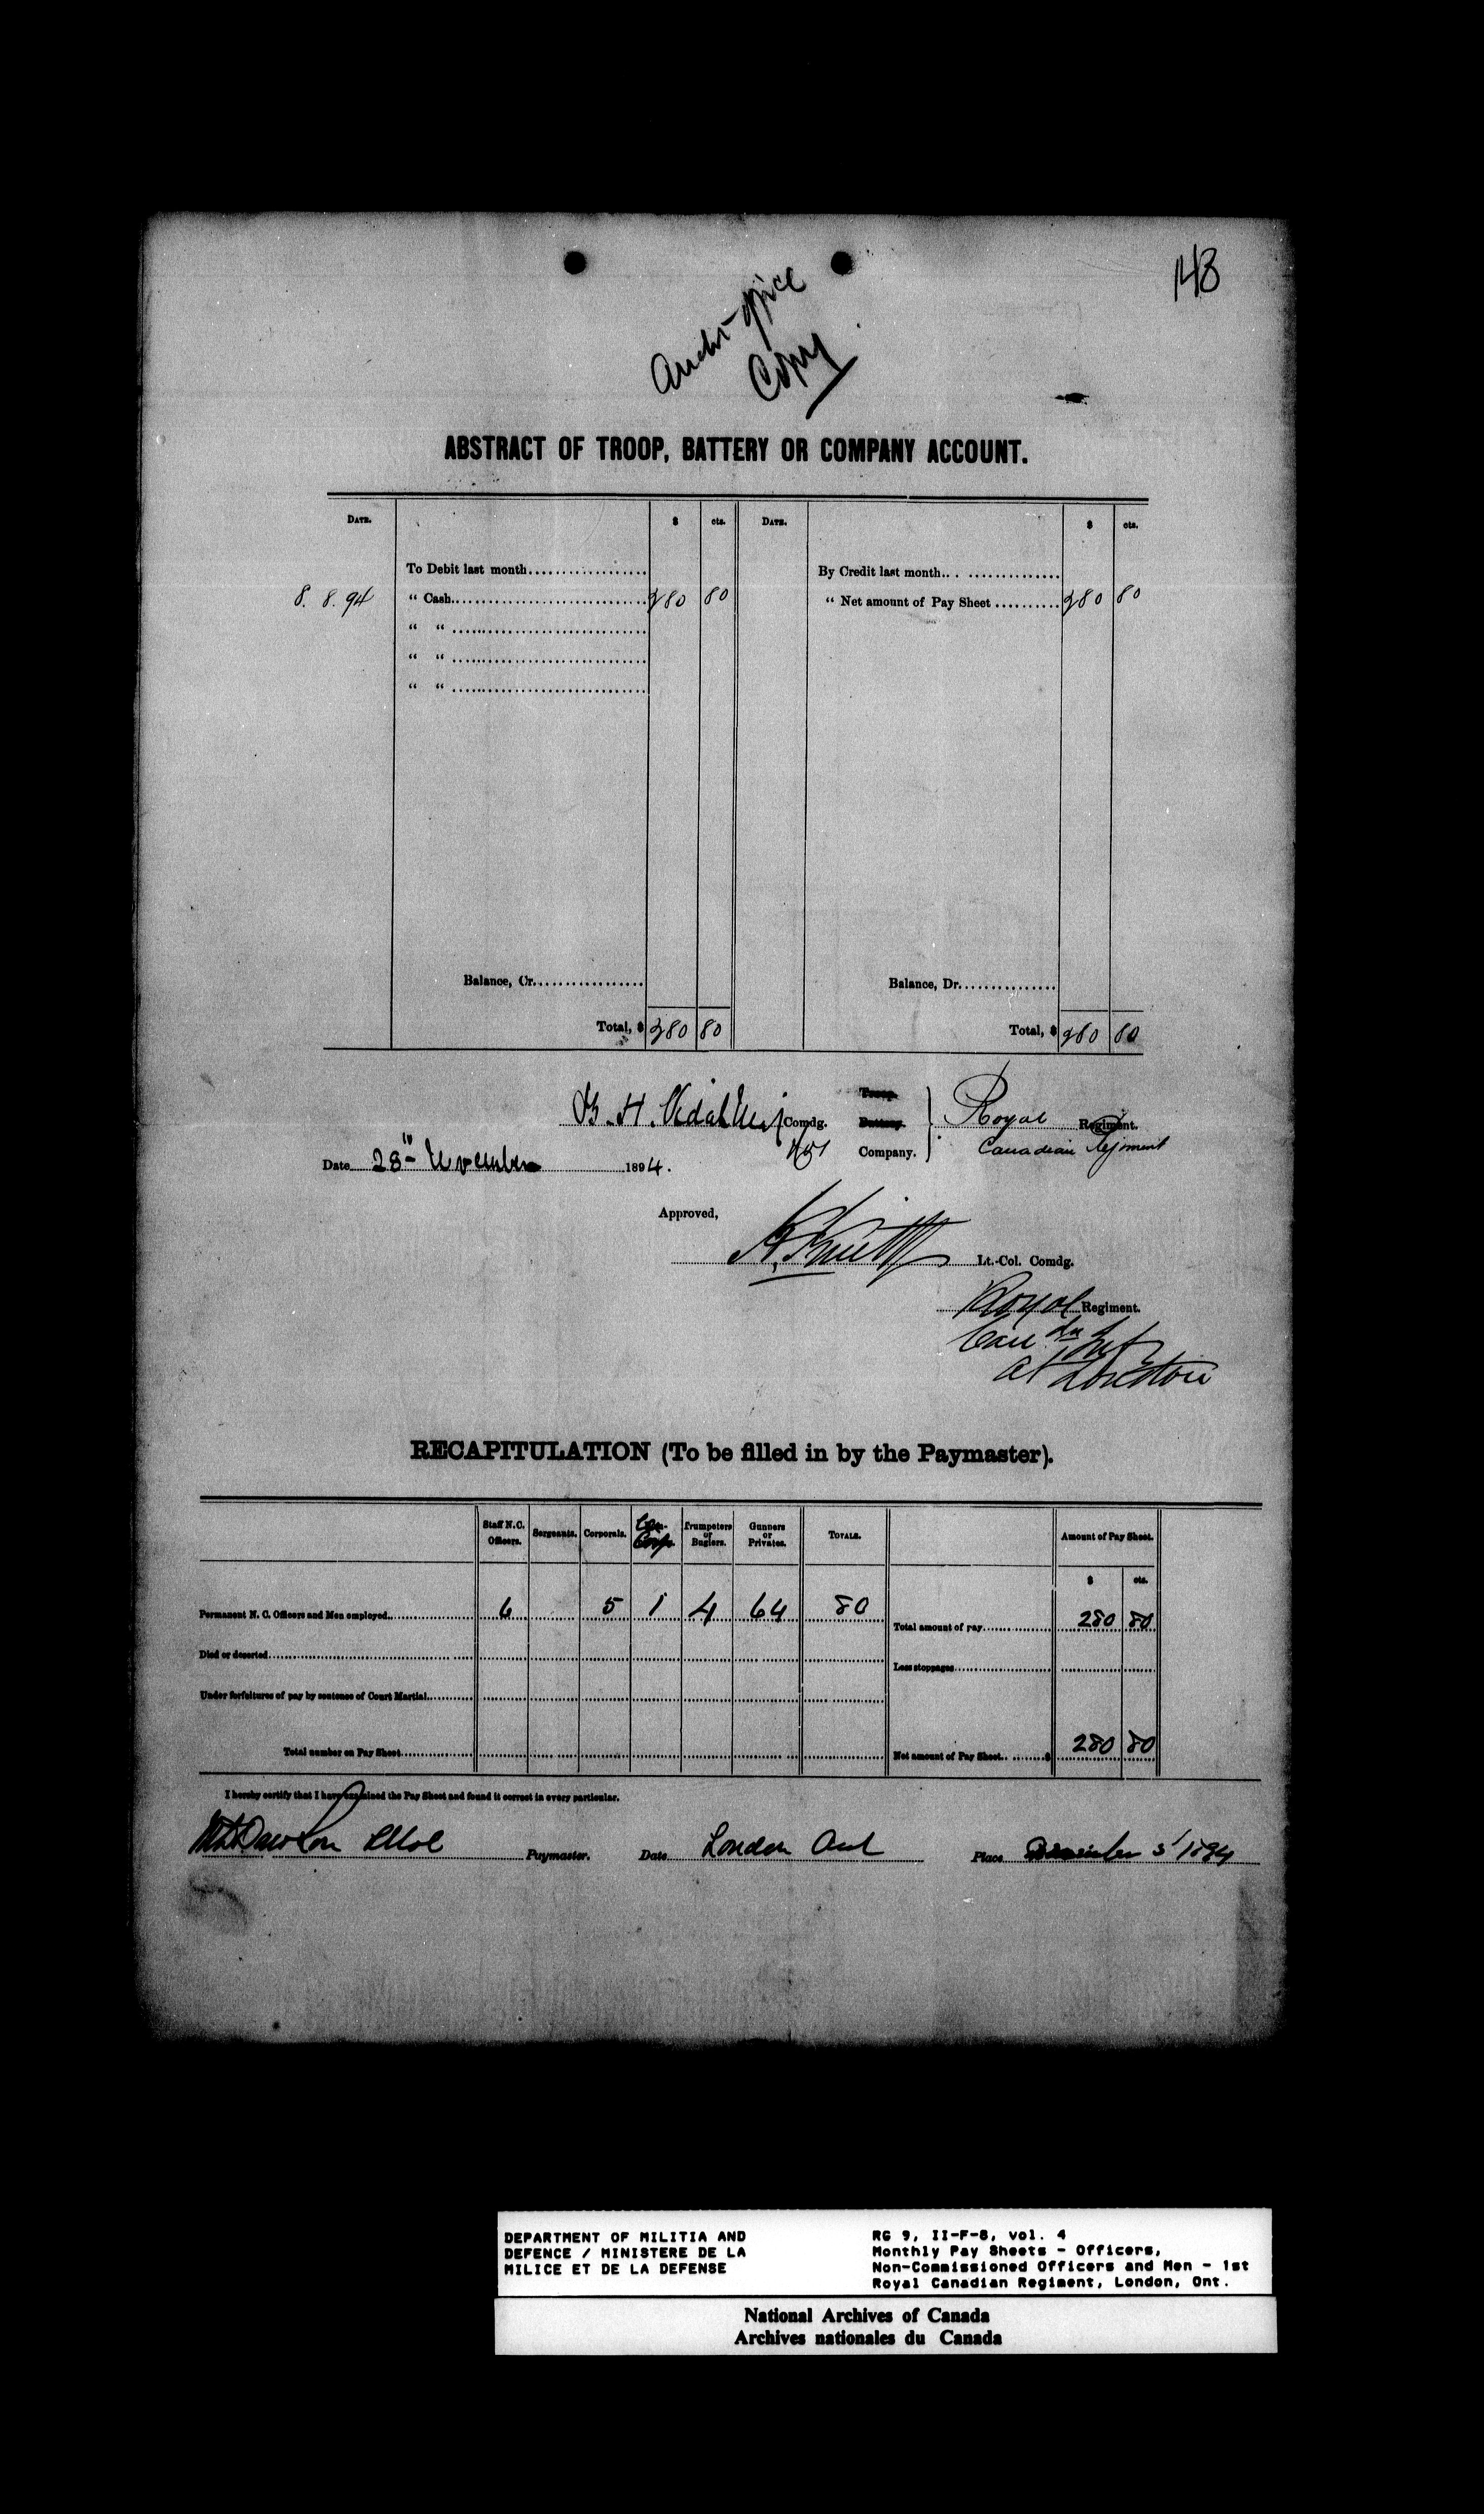 148
Audit office
Copy
ABSTRACT OF TROOP, BATTERY OR COMPANY ACCOUNT.
DATE. $ cts. DATE. $ cts.
To Debit last month By Credit last month
8. 8. 94 “ Cash 280 80 “ Net amount of Pay Sheet 280 80
“ “
“ “
“ “
Balance, Cr. Balance, Dr.
Total, $ 280 80 Total, $ 280 80
B. H. Vidal Comdg. Troop. Battery. Company. Royal Regiment.
Canadian Regiment
Date 28th November 1894.
Approved,
Lt.-Col. Comdg.
Royal Regiment.
at London
RECAPITULATION (To be filled in by the Paymaster).
Staff N.C. Officers. Sergeants. Corporals. Corp. Trumpeters or Buglers. Gunners or Privates. TOTALS. Amount of Pay Sheet.
$ cts.
Permanent N. C. Officers and Men employed 6 5 1 4 64 80 Total amount of pay 280 80
Died or deserted Less stoppages
Under forfeitures of pay by sentence of Court Martial
Total number on Pay Sheet Net amount of Pay Sheet $ 280 80
I hereby certify that I have examined the Pay Sheet and found it correct in every particular.
Dawson Paymaster. Date London Ont Place December 5 1894
DEPARTMENT OF MILITIA AND
DEFENCE / MINISTERE DE LA
MILICE ET DE LA DEFENSE
RG 9, II-F-8, vol. 4
Monthly Pay Sheets - Officers,
Non-Commissioned Officers and Men - 1st
Royal Canadian Regiment, London, Ont.
National Archives of Canada
Archives nationales du Canada